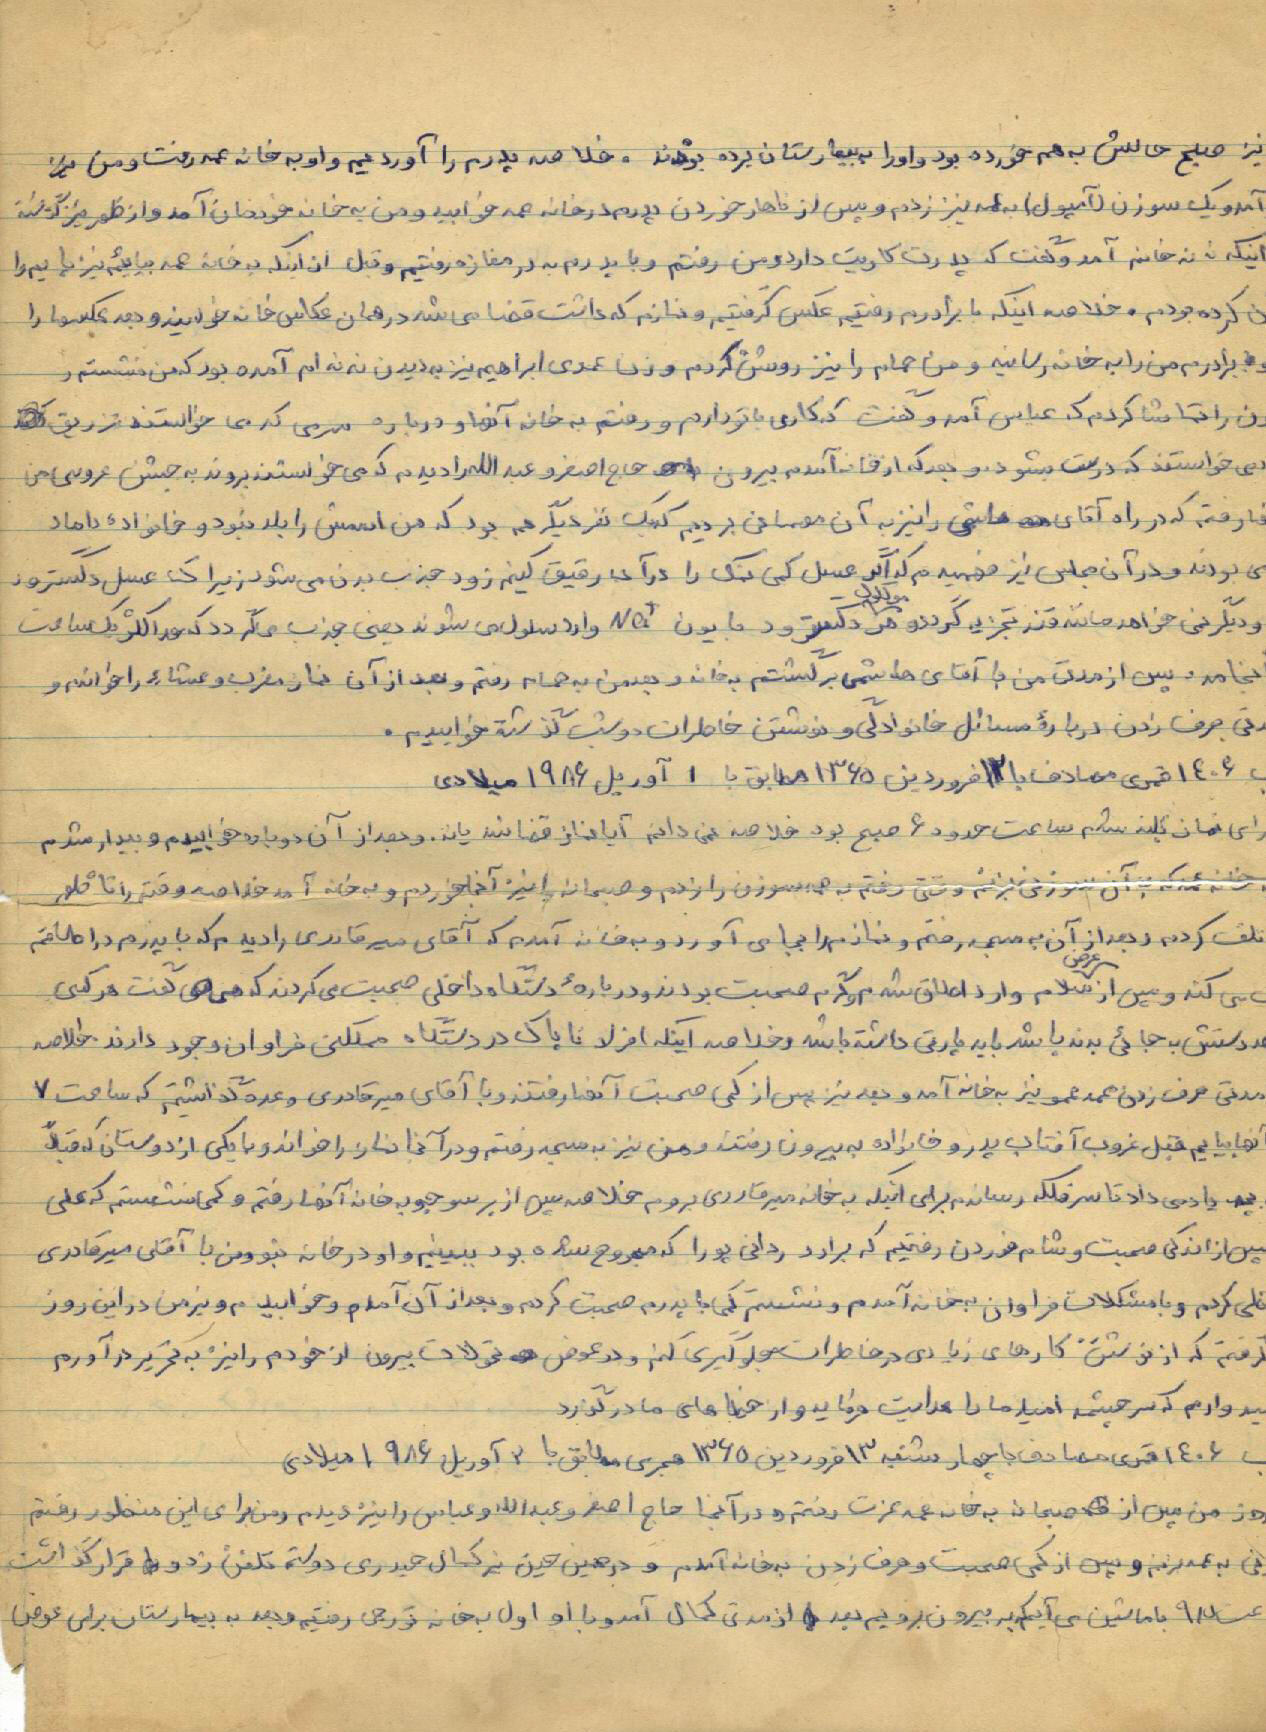 نیز صبح حالش به هم خورده بود و او را به بیمارستان برده بودند . خلاصه پدرم را آوردیم و او به خانه عمه رفت و من نیز
آمد و یک سوزن (آمپول) به عمه نیز زدم و پس از ناهار خوردن پدرم در خانه عمه خوابید و من به خانه خودمان آمد و از ظهر نیز گذشته
اینکه ننه خانه آمد و گفت که پدرت کاریت دارد و من رفتم و با پدرم به در مغازه رفتیم و قبل از اینکه به خانه عمه بیایم نیز
ن کرده بودم . خلاصه اینکه با برادرم رفتیم عکس گرفتیم و نمازم که داشت قضا می شد در همان عکاس خانه خواندم و بعد عکسها را
و برادرم من را به خانه رسانید و من حمام را نیز روشن کردم و زن عموی ابراهیم نیز به دیدن ننه ام آمده بود که من نشستم و
ون را تماشا کردم که عباس آمد و گفت که کاری با تو دارم و رفتم به خانه آنها و درباره سرمی که می خواستند تزریق
می خواستند که درست بشود . و بعد که از خانه آمدم بیرون حاج اصغر و عبدالله را دیدم که می خواستند بروند به جشن عروسی من
رفتم که در راه آقای هاشمی را نیز به آن مهمانی بردیم که یک نفر دیگر هم بود که من اسمش را بلد نبود و خانواده داماد
ی بودند و در آن مجلس نیز فهمیدم که اگر عسل کمی نمک را در آب رقیق کنیم زود جذب بدن می شود زیرا که عسل دکستروز
و دیگر نمی خواهد مانند قند تجزیه گردد و هر مولکول دکستروز با یون Na+ وارد سلول می شوند یعنی جذب می گردد که حداکثر یک ساعت
انجامد . پس از مدتی من با آقای هاشمی برگشتم به خانه و بعد من به حمام رفتم و بعد از آن نماز مغرب و عشاء را خواندم و
مدتی حرف زدن درباره مسائل خانوادگی و نوشتن خاطرات دو شب گذشته خوابیدم .
ب ۱۴۰۶ قمری مصادف با ۱۲ فروردین ۱۳۶۵ مطابق با ۱ آوریل ۱۹۸۶ میلادی
برای نماز بلند شدم ساعت حدود ۶ صبح بود خلاصه نمی دانم آیا نماز قضا شد یا نه . و بعد از آن دوباره خوابیدم و بیدار شدم
خانه عمه که به آن سوزنی بزنم وقتی رفتم به عمه سوزن را زدم و صبحانه را نیز آنجا خوردم و به خانه آمد خلاصه وقتم را تا ظهر
تلف کردم و بعد از آن به مسجد رفتم و نمازم را بجا می آورد و به خانه آمدم که آقای میرقادری را دیدم که با پدرم در اطاقم
ت می کند و پس از عرض سلام وارد اطاق شدم و گرم صحبت بودند و درباره دستگاه داخلی صحبت می کردند که می گفت هر کسی
دستش به جائی بند باشد باید پارتی داشته باشد و خلاصه اینکه افراد ناپاک در دستگاه مملکتی فراوان وجود دارند خلاصه
مدتی حرف زدن عمه عمو نیز به خانه آمد و بعد نیز پس از کمی صحبت آنها رفتند و با آقای میرقادری وعده گذاشتیم که ساعت ۷
آنها بیایم قبل غروب آفتاب پدر و خانواده به بیرون رفتند و من نیز به مسجد رفتم و در آنجا نماز را خواند و با یکی از دوستان که قبلاً
یاد می داد تا سر فلکه رساندم برای اینکه به خانه میرقادری بروم خلاصه پس از پرسو جو به خانه آنها رفتم و کمی نشستم که علی
پس از اندکی صحبت و شام خوردن رفتیم که برادر ردانی پور را که مجروح شده بود ببینیم و او در خانه نبود و من با آقای میرقادری
کردم و با مشکلات فراوان به خانه آمدم و نشستم کمی با پدرم صحبت کردم و بعد از آن آمدم و خوابیدم و نیز من در این روز
گرفتم که از نوشتن کارهای زیادی در خاطرات جلوگیری کنم و در عوض تحولات بیرون از خودم را نیز به تحریر در آورم
امیدوارم که سرچشمه امید ما را هدایت فرماید و از خطاهای ما درگذرد
ب ۱۴۰۶ قمری مصادف با چهارشنبه ۱۳ فروردین ۱۳۶۵ هجری مطابق با ۲ آوریل ۱۹۸۶ میلادی
روز من پس از صبحانه به خانه عمه عزت رفتم و در آنجا حاج اصغر و عبدالله و عباس را نیز دیدم و من برای این منظور رفتم
به عمه بزنم و پس از کمی صحبت و حرف زدن به خانه آمدم و در همین حین نیز کمال حیدری دوستم تلفن زد و قرار گذاشت
عت ۹ با ماشین می آیم که به بیرون برویم بعد از مدتی کمال آمد و با او اول به خانه تورجی رفتیم و بعد به بیمارستان برای عوض